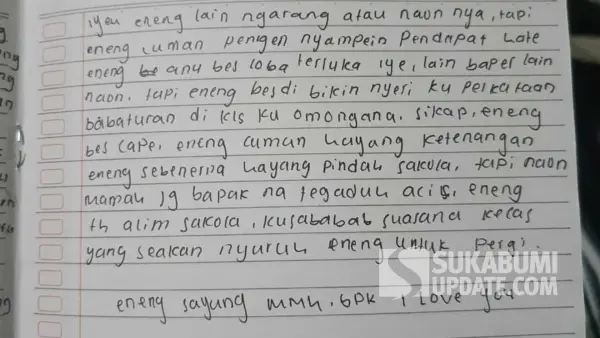 iyeu eneng lain ngarang atau naon nya, tapi
eneng cuman pengen nyampein pendapat hate
eneng anu bes loba terluka iye, lain baper lain
naon. tapi eneng besdi bikin nyeri ku perkataan
babaturan di kls ku omongana, sikap, eneng
bes cape, eneng cuman hayang ketenangan
eneng sebenerna hayang pindah sakola, tapi naon
mamah jg bapak na tegaduh acis, eneng
th alim sakola, kusababab suasana kelas
yang seakan nyuruh eneng untuk pergi.
eneng sayang mmh, bpk I love you
SUKABUMI
UPDATE.COM